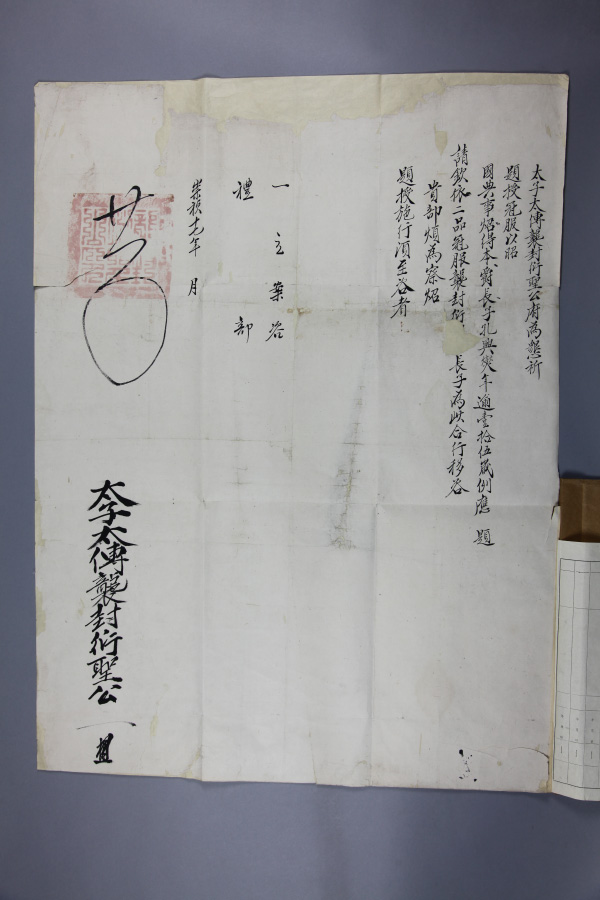 太子太傅襲封衍聖公府爲懇祈
題授冠服以昭
國典事照得本爵長子孔興燮年逾壹拾伍歲例應 題
請欽依二品冠服襲封衍 長子爲此合行移咨
貴部煩爲察照
題授施行須至咨者
一 立案咨
禮 部
崇禎十七年 月
太子太傅襲封衍聖公